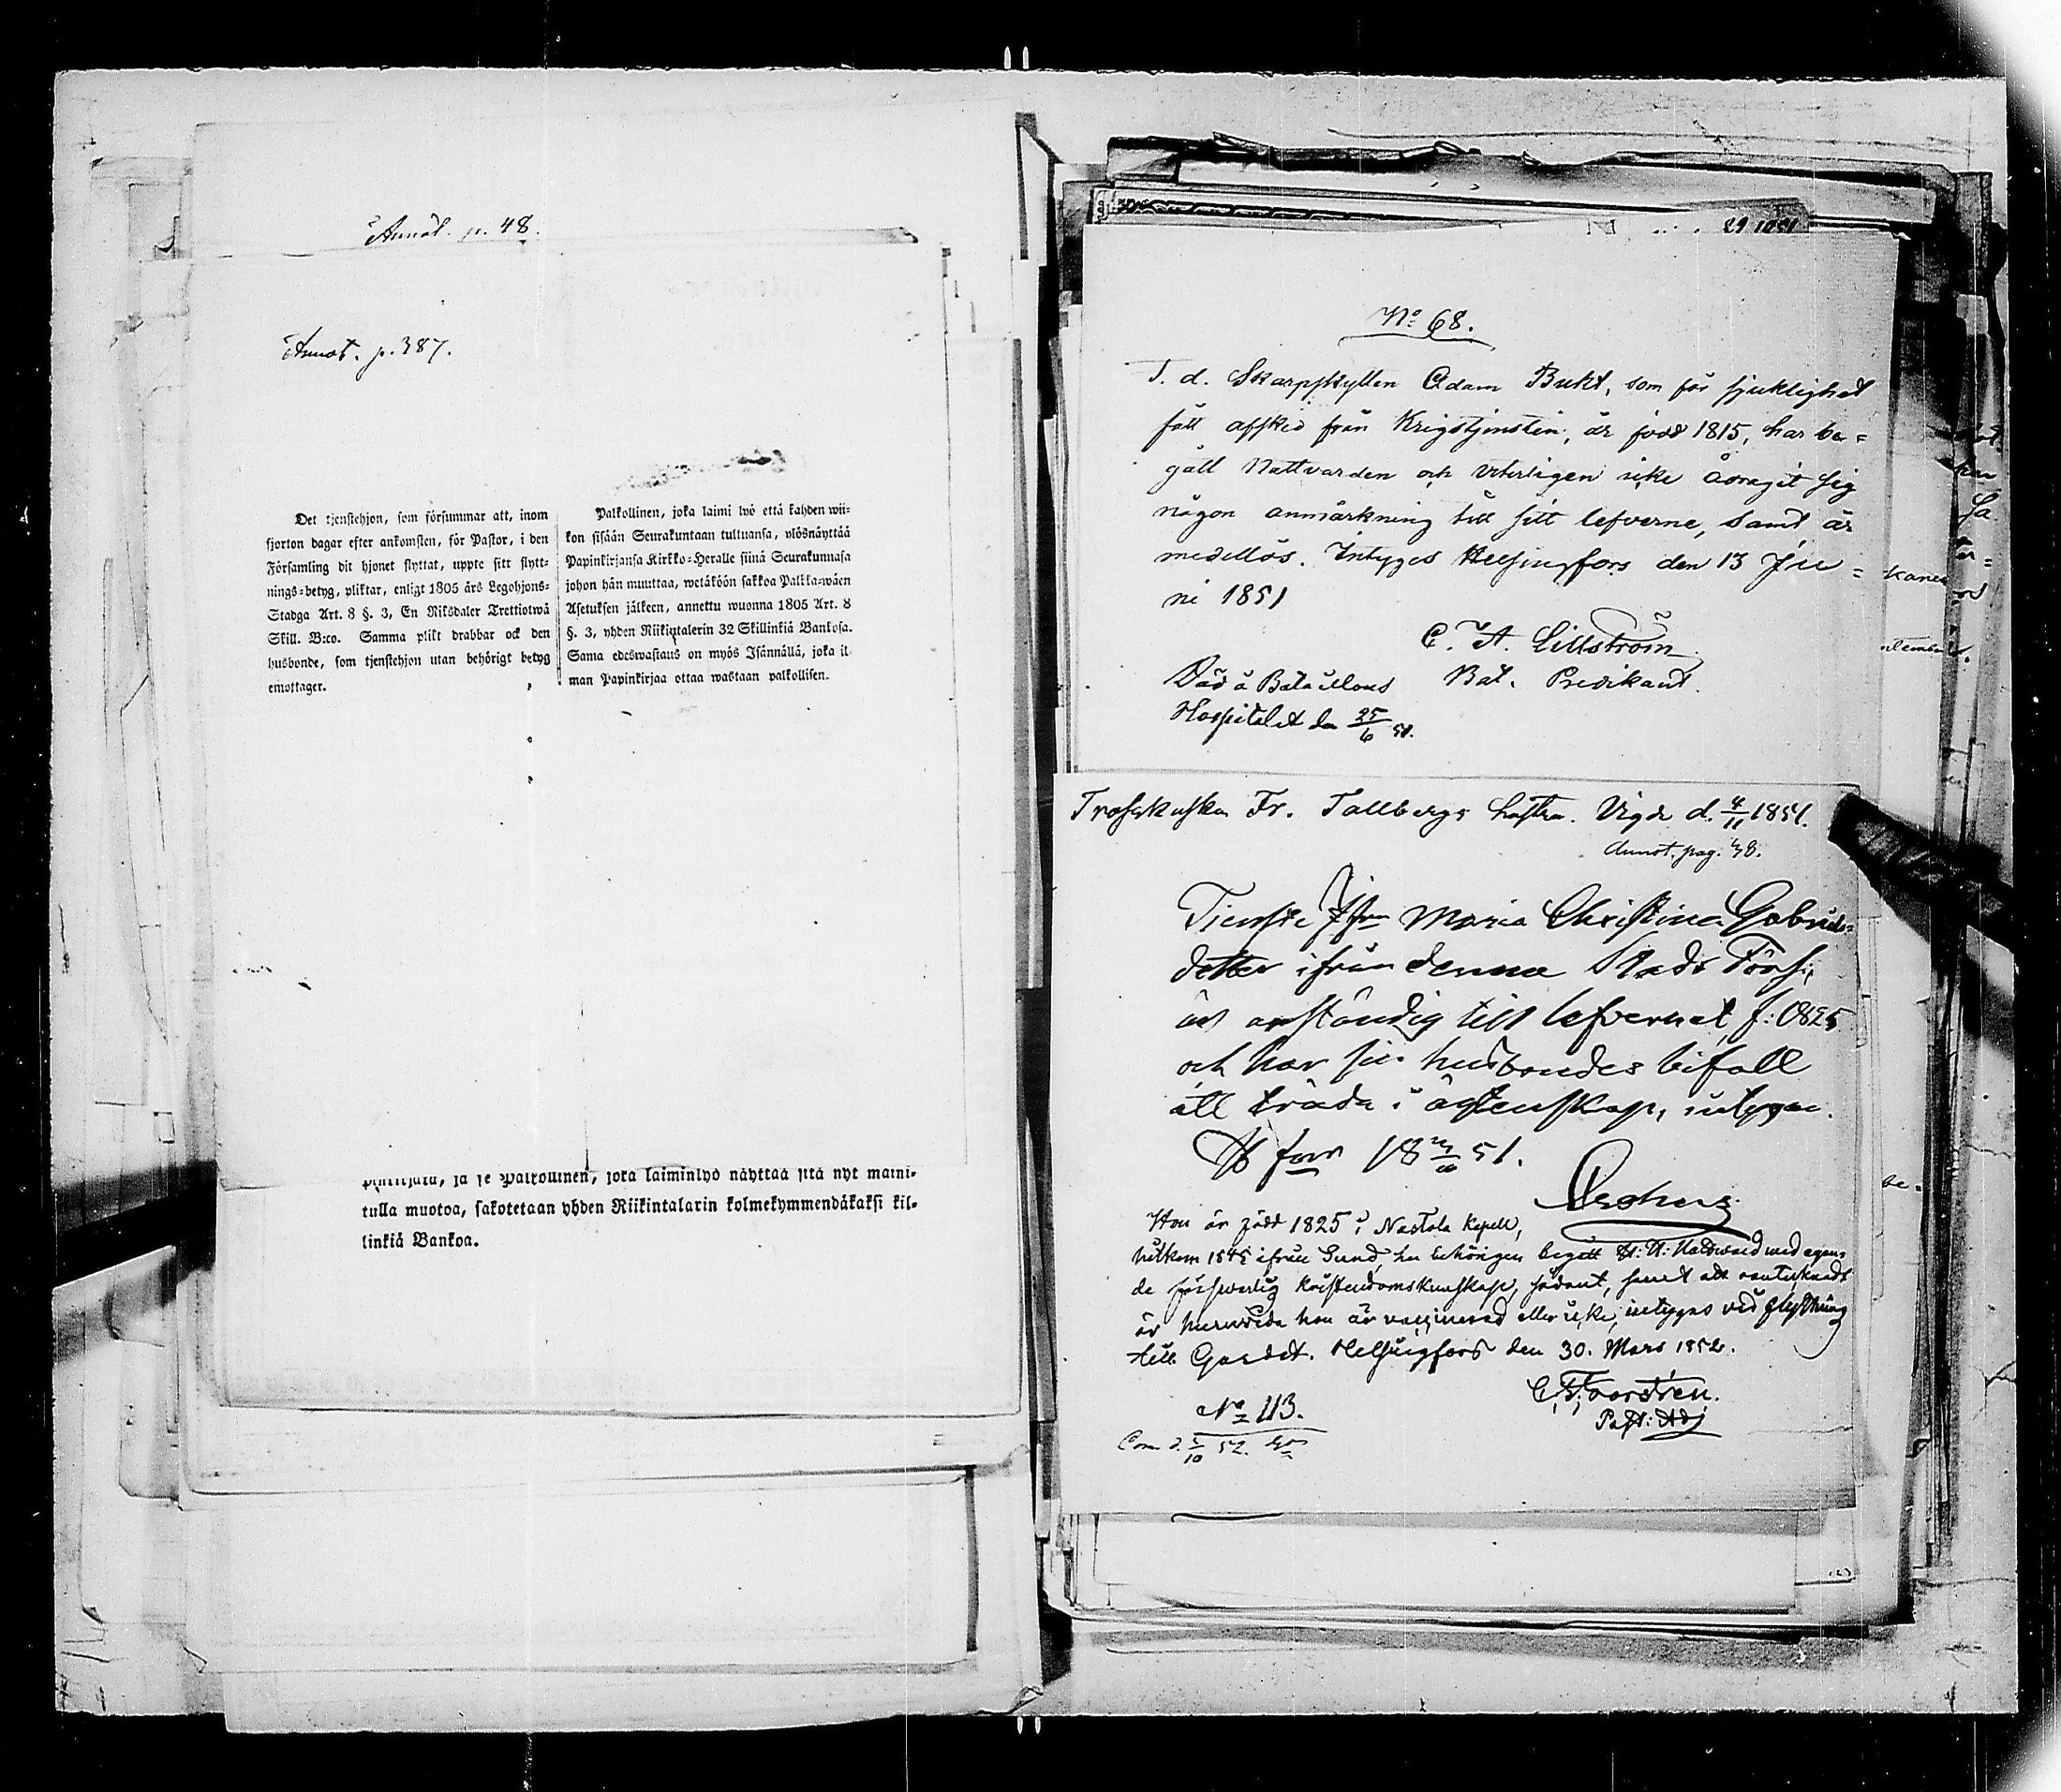 Annot. p. 48.
Annot. p. 387.
Det tjenstehjon, som försummar att, inom
fjorton dagar efter ankomsten, för Pastor, i den
Församling dit hjonet flyttat, uppte sitt flytt-
nings-betyg, pliktar, enligt 1805 års Legohjons-
Stadga Art. 8 §. 3, En Riksdaler Trettiotwå
Skill. B:co. Samma plikt drabbar ock den
husbonde, som tjenstehjon utan behörigt betyg
emottager.
Palkollinen, joka laimi lyö että kahden wii-
kon sisään Seurakuntaan tultuansa, ylösnäyttää
Papinkirjansa Kirkko-Heralle siinä Seurakunnasa
johon hän muuttaa, wetäköön sakkoa Palkka-wäen
Asetuksen jälkeen, annettu wuonna 1805 Art. 8
§. 3, yhden Riikintalerin 32 Skillinkiä Bankosa.
Sama edeswastaus on myös Isännällä, joka il-
man Papinkirjaa ottaa wastaan palkollisen.
ja se Palkollinen, joka laiminlyö näyttää sitä nyt maini-
tulla muotoa, sakotetaan yhden Riikintalarin kolmekymmendäkaksi kil-
linkiä Bankoa.
No 68.
F. d. Skarpskytten Adam Bukt, som för sjuklighet
fått afsked från Krigstjensten, är född 1815, har be=
gått Nattvarden och veterligen icke ådragit sig
någon anmärkning till sitt lefverne, samt är
medellös. Intyges Helsingfors den 13 Ju=
ni 1851
C. A. Lillström
Bat. Predikant.
Död å Bataillons
Hospitalet den 25/6 51.
Trosskusken Fr. Tallbergs hustru. Vigde d. 4/11 1851.
Annot. pag. 48.
Tienste Jfrn Maria Christina Gabriels=
dotter ifrån denna Stads Förs:,
är anständig till lefvernet, f: 1825
och har sin husbondes bifall
att träda i äktenskap, intygar.
H fors 18 51.
Hon är född 1825 i Nastola Kapell,
hitkom 1845 ifrån Sund, har behörigen begått H: H: Nattward med egan=
de förswarlig Kristendomskunskap, sådant, samt att oanteknadt
är huruvida hon är vaccinerad eller icke, intygas vid flyttning
till Gardet. Helsingfors den 30. Mars 1852.
Past: Adj
No 113.
Com d. 5/10 52.